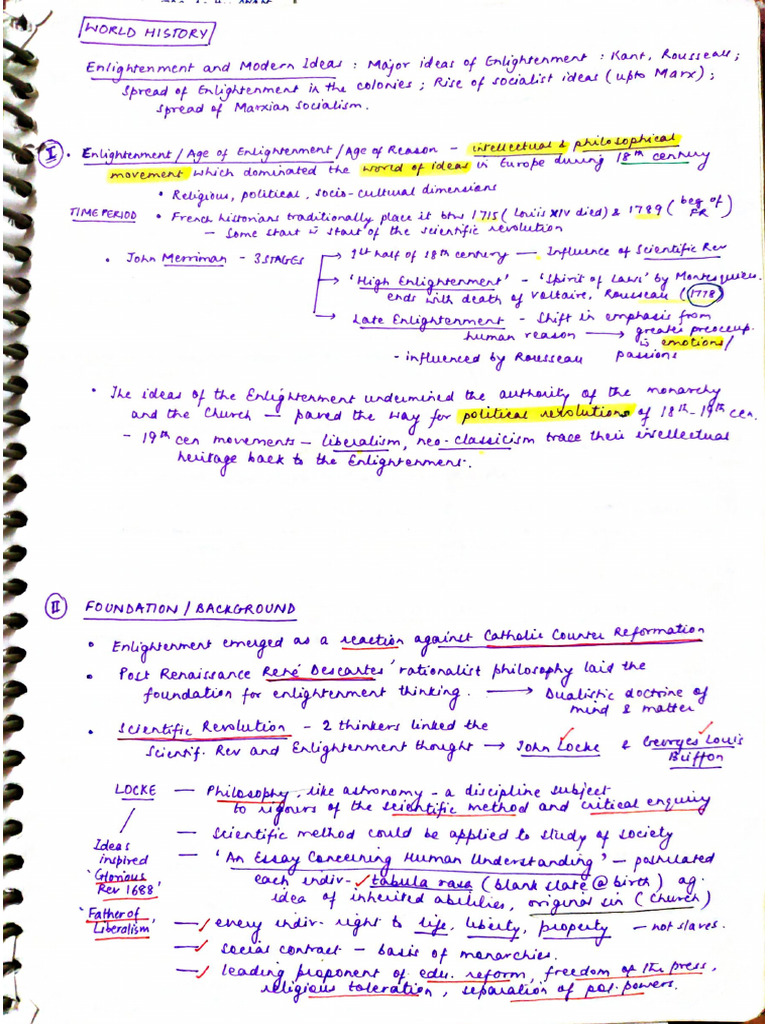 WORLD HISTORY
Enlightenment and Modern Ideas : Major ideas of Enlightenment : Kant, Rousseau ;
Spread of Enlightenment in the colonies ; Rise of socialist ideas (upto Marx) ;
spread of Marxian Socialism.
I • Enlightenment / Age of Enlightenment / Age of Reason – intellectual & philosophical
movement which dominated the world of ideas in Europe during 18th century
• Religious, political, socio-cultural dimensions
TIME PERIOD • French historians traditionally place it btw 1715 (Louis XIV died) & 1789 (beg of FR)
– Some start w start of the scientific revolution
• John Merriman - 3 STAGES → 1st half of 18th century — Influence of Scientific Rev
→ 'High Enlightenment' - 'Spirit of Laws' by Montesquieu.
ends with death of Voltaire, Rousseau (1778)
→ Late Enlightenment - Shift in emphasis from
human reason → greater preoccup.
w emotions/
- influenced by Rousseau passions
• The ideas of the Enlightenment undermined the authority of the monarchy
and the Church – paved the way for political revolutions of 18th-19th cen.
- 19th cen movements – liberalism, neo-classicism trace their intellectual
heritage back to the Enlightenment.
II FOUNDATION / BACKGROUND
• Enlightenment emerged as a reaction against Catholic Counter Reformation
• Post Renaissance René Descartes' rationalist philosophy laid the
foundation for enlightenment thinking. → Dualistic doctrine of
mind & matter
• Scientific Revolution - 2 thinkers linked the
Scientif. Rev and Enlightenment thought → John Locke & Georges Louis
Buffon
LOCKE — Philosophy, like astronomy - a discipline subject
to rigours of the scientific method and critical enquiry
— Scientific method could be applied to study of society
Ideas
inspired
'Glorious
Rev 1688'
— 'An Essay Concerning Human Understanding' – postulated
each indiv- tabula rasa (blank slate @ birth) ag.
idea of inherited abilities, original sin (Church)
'Father of
Liberalism'
— every indiv. right to life, liberty, property — not slaves.
— social contract – basis of monarchies.
— leading proponent of edu. reform, freedom of the press,
religious toleration, separation of pol. powers.